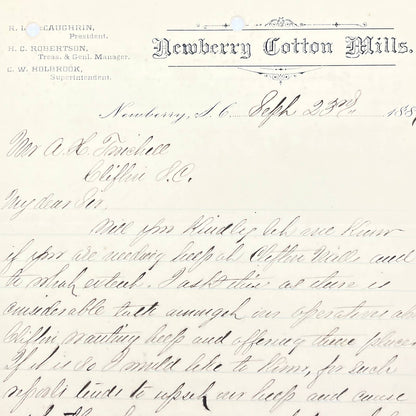 R. L. McCAUGHRIN,
President.
H. C. ROBERTSON,
Treas. & Genl. Manager.
C. W. HOLBROOK,
Superintendent.
Newberry Cotton Mills,
Newberry, S. C. Sept 23rd, 188
Mr A. H. Twichell
Clifton S.C.
My dear Sir,
Will you Kindly let me Know
if you are needing help at Clifton Mills and
to what extent. I ask this as there is
considerable talk amongst our operatives
Clifton wanting help and offering them places
If it is so I would like to Know, for such
reports tends to upset our help and cause